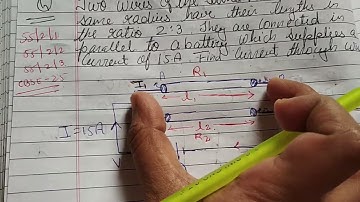 Q Two wires of the same
same radius have their lengths in
the ratio 2:3. They are connected in
parallel to a battery which supplies a
current of 15A. Find current through
55/2/1
55/2/2
55/2/3
CBSE-25
A R₁
I₁
l₁
I=15A
l₂
R₂
V